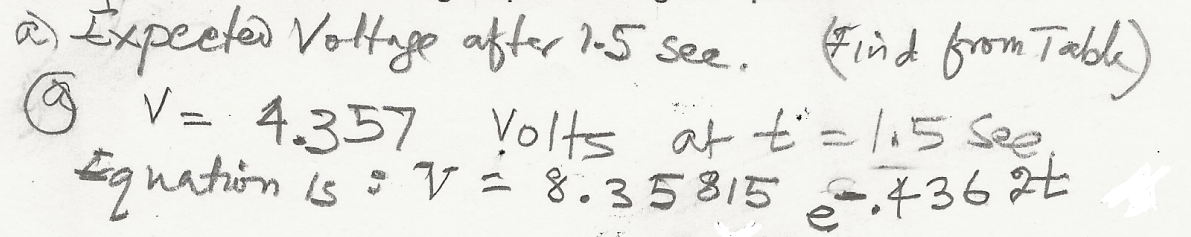 a) Expected Voltage after 1.5 sec. (Find from Table)
(a) V = 4.357 Volts at t = 1.5 Sec.
Equation is : V = 8.35815 e^-.4362t